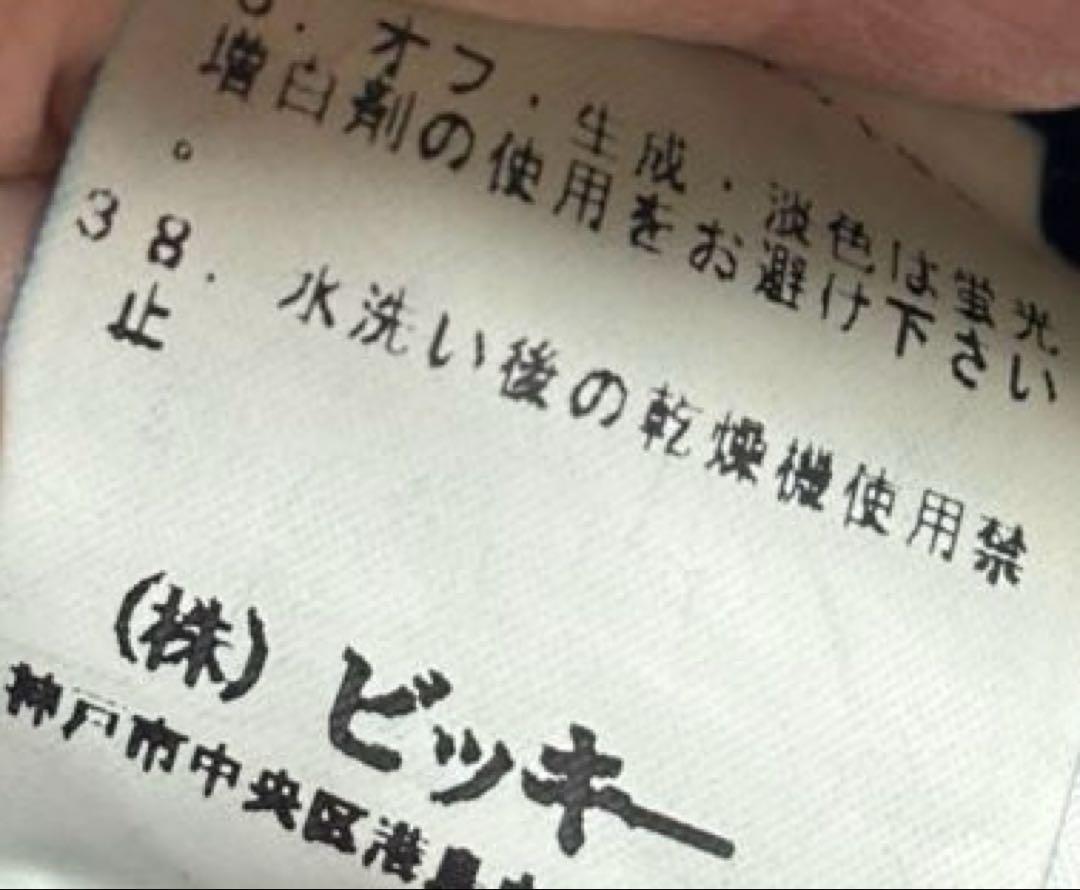 オフ．生成．淡色は蛍光
増白剤の使用をお避け下さい
。
38．水洗い後の乾燥機使用禁
止
(株)ビッキー
神戸市中央区港島